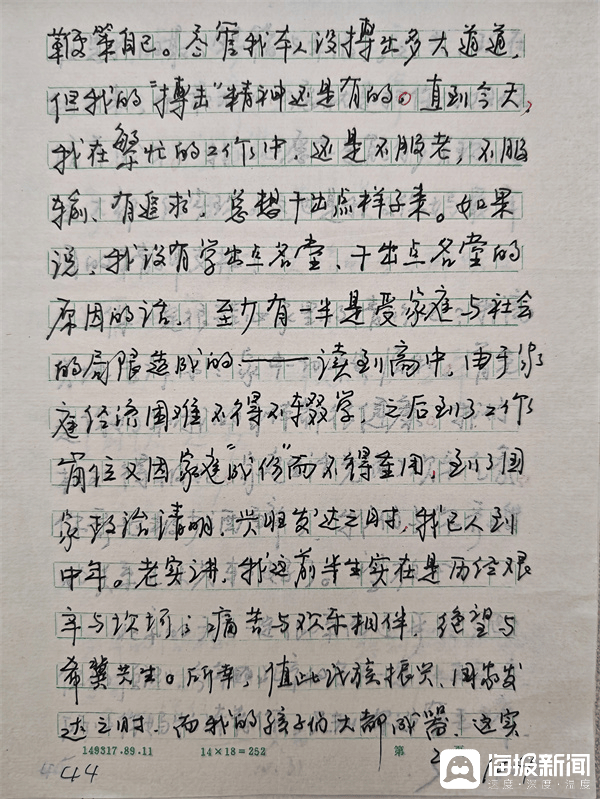 鞭策自己。尽管我本人没搏出多大道道,
但我的“搏击”精神还是有的。直到今天,
我在繁忙的工作中,还是不服老,不服
输、有追求,总想干出点样子来。如果
说,我没有学出点名堂、干出点名堂的
原因的话,至少有一半是受家庭与社会
的局限造成的——读到高中,由于家
庭经济困难不得不辍学,之后到了工作
岗位又因家庭“成份”而不得重用,到了国
家政治清明、兴旺发达之时,我已人到
中年。老实讲,我这前半生实在是历经艰
辛与坎坷;痛苦与欢乐相伴,绝望与
希冀共生。所幸,值此民族振兴、国家发
达之时,而我的孩子们大都成器,这实
149317.89.11 14×18=252 第
44
海报新闻
态度·深度·温度